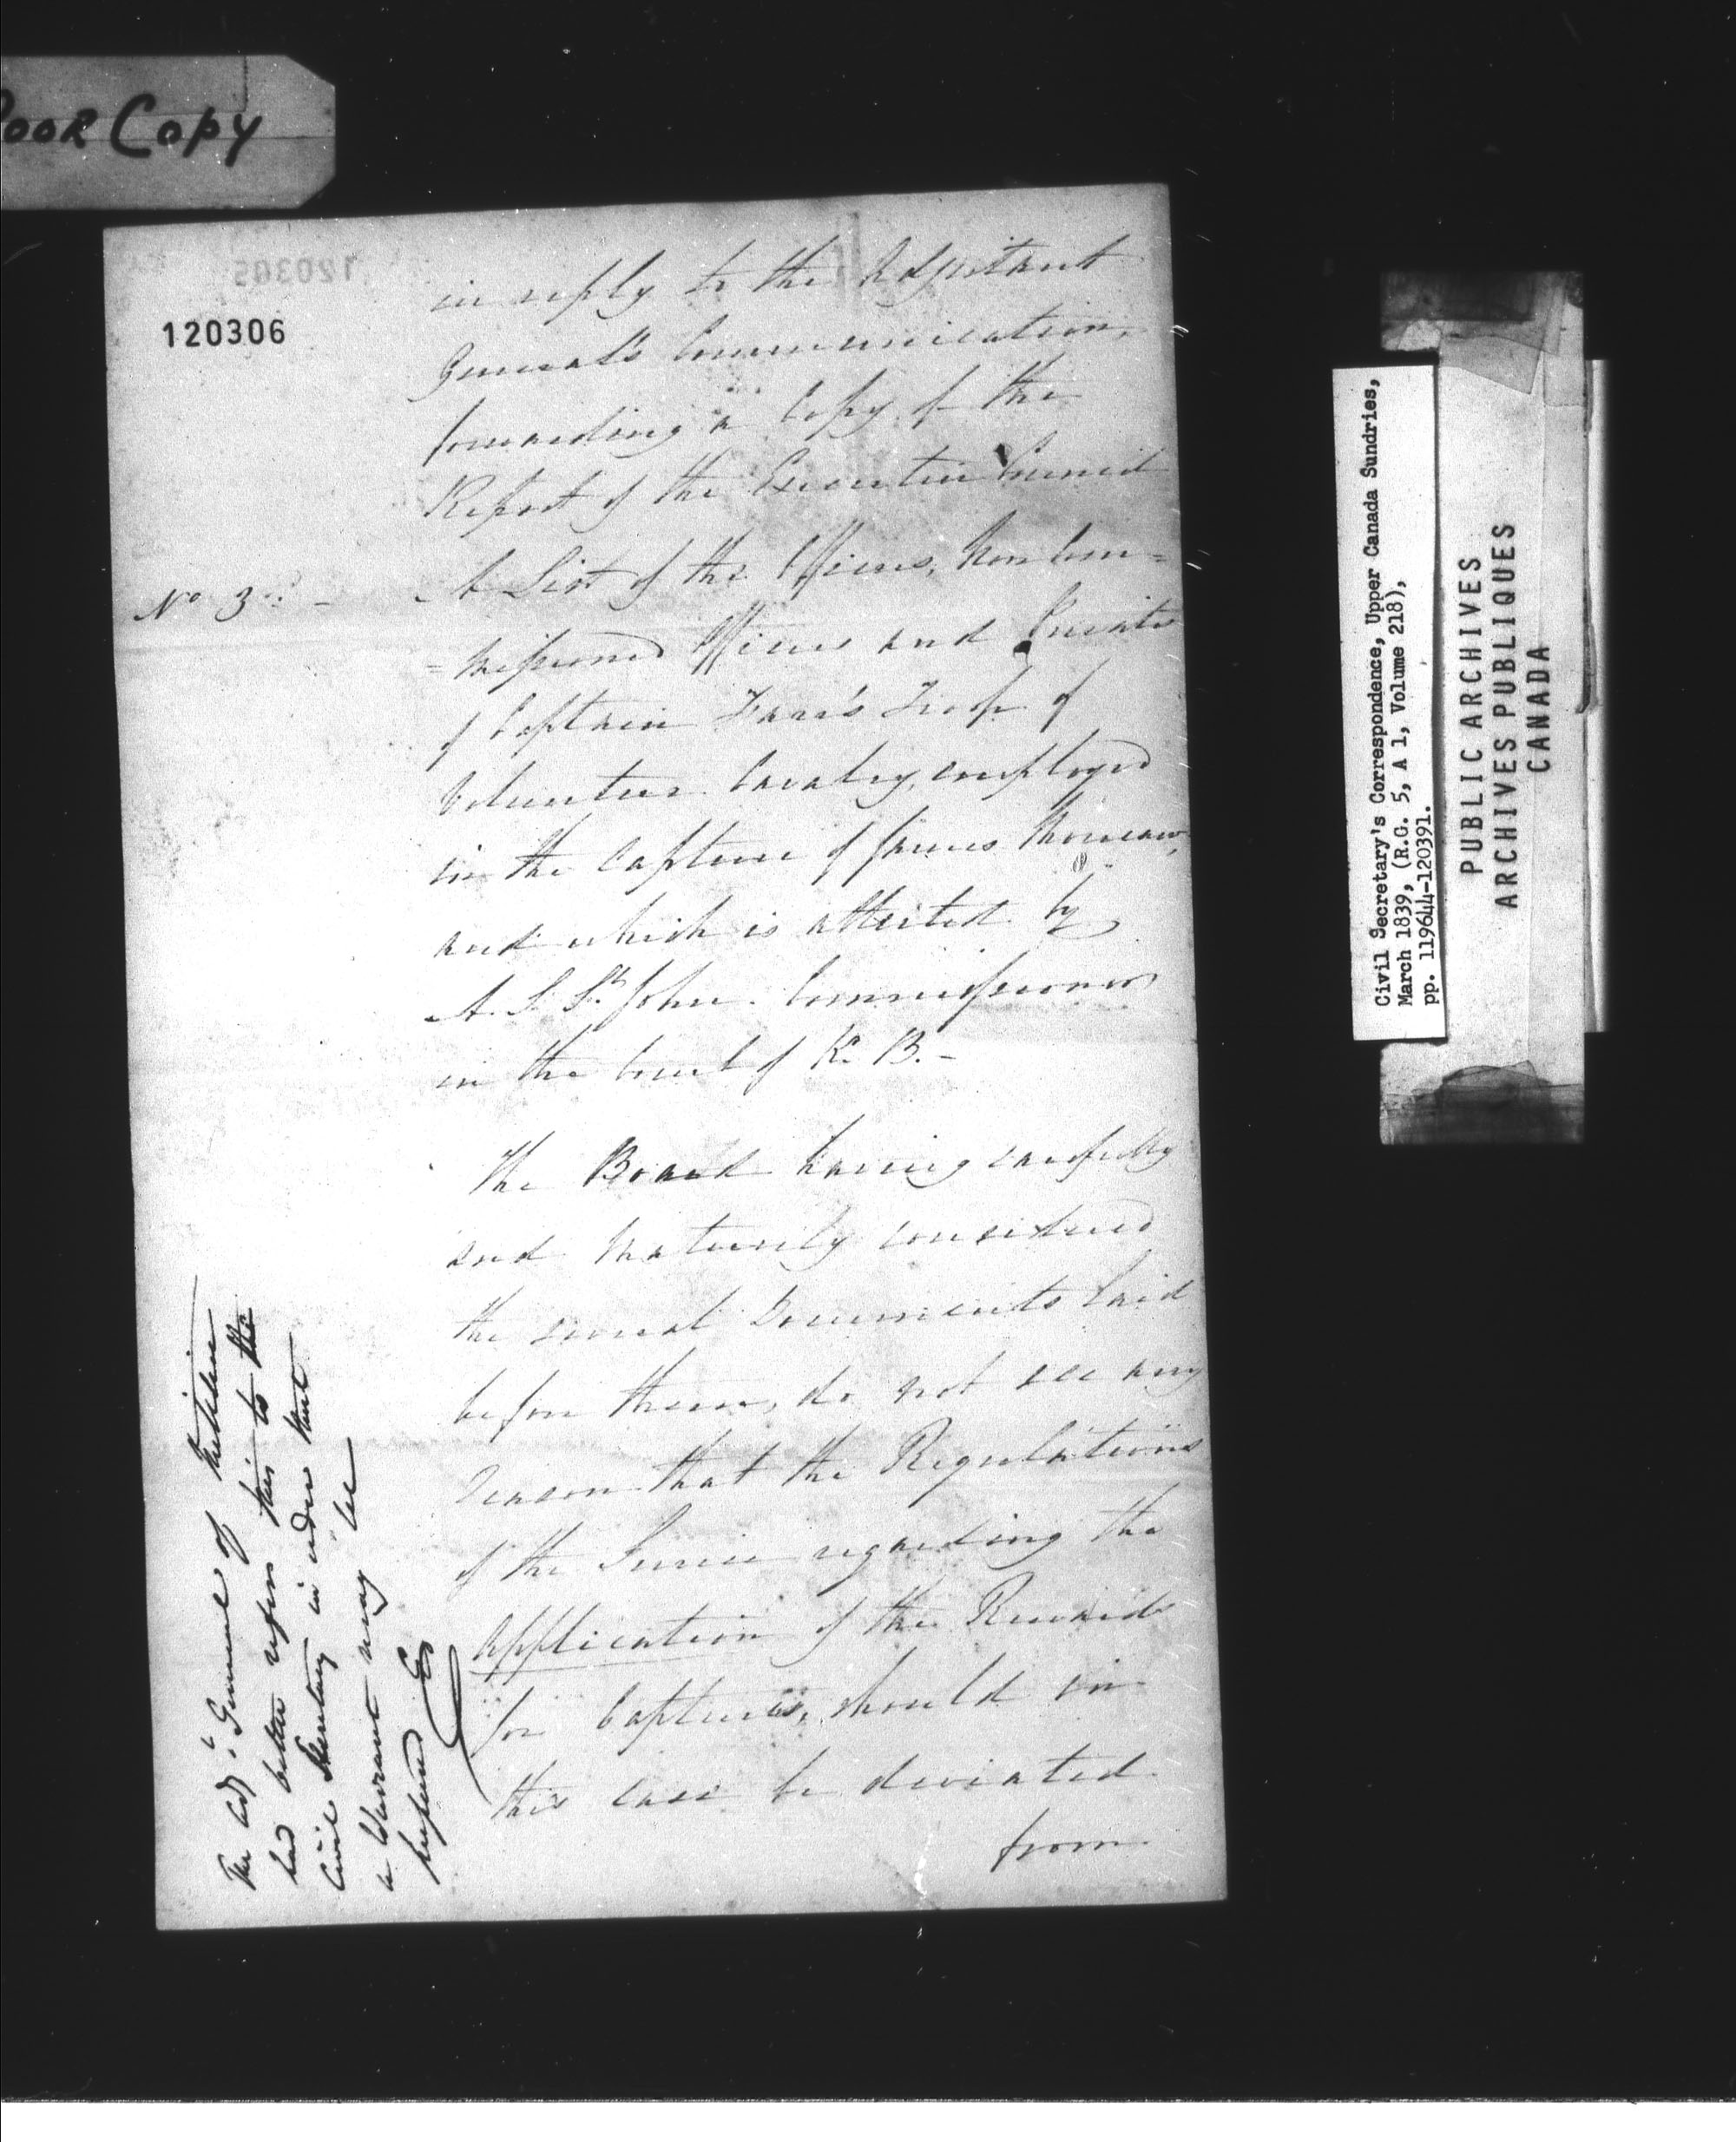 Poor Copy
120305
120306
in reply to the Adjutant
General's Communication,
forwarding a Copy of the
Report of the Executive Council
No 3 -
A List of the Officers, Non Com=
=missioned Officers and Privates
of Captain Troop of
Volunteer Cavalry, employed
in the Capture of James Morreau,
and which is attested by
A. S. St. John. Commissioner
in the Court of K. B. -
The Board having carefully
and maturely considered
the several Documents laid
before them, do not see any
reason that the Regulations
of the Service regarding the
application of the Rewards
for Captures, should in
this case be deviated
from
The Adjt General of Militia
had better refer this to the
Civil Secretary in order that
a Warrant may be
prepared
Civil Secretary's Correspondence, Upper Canada Sundries,
March 1839, (R.G. 5, A 1, Volume 218),
pp. 119644-120391.
PUBLIC ARCHIVES
ARCHIVES PUBLIQUES
CANADA